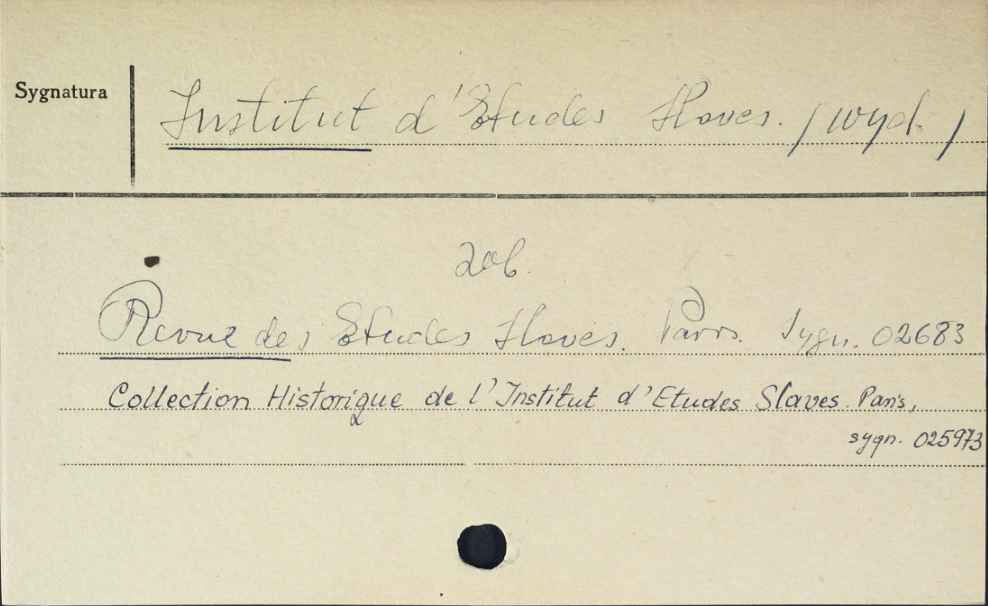 Sygnatura
Institut d'Etudes Slaves. /wyd./
zob.
Revue des Etudes Slaves. Paris. Sygn. 02683
Collection Historique de l'Institut d'Etudes Slaves. Paris,
sygn. 025973